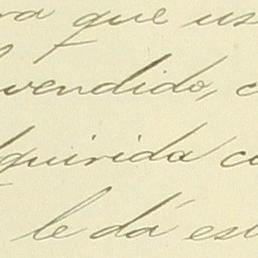 ra que us
vendido, c
quirida co
le dá est